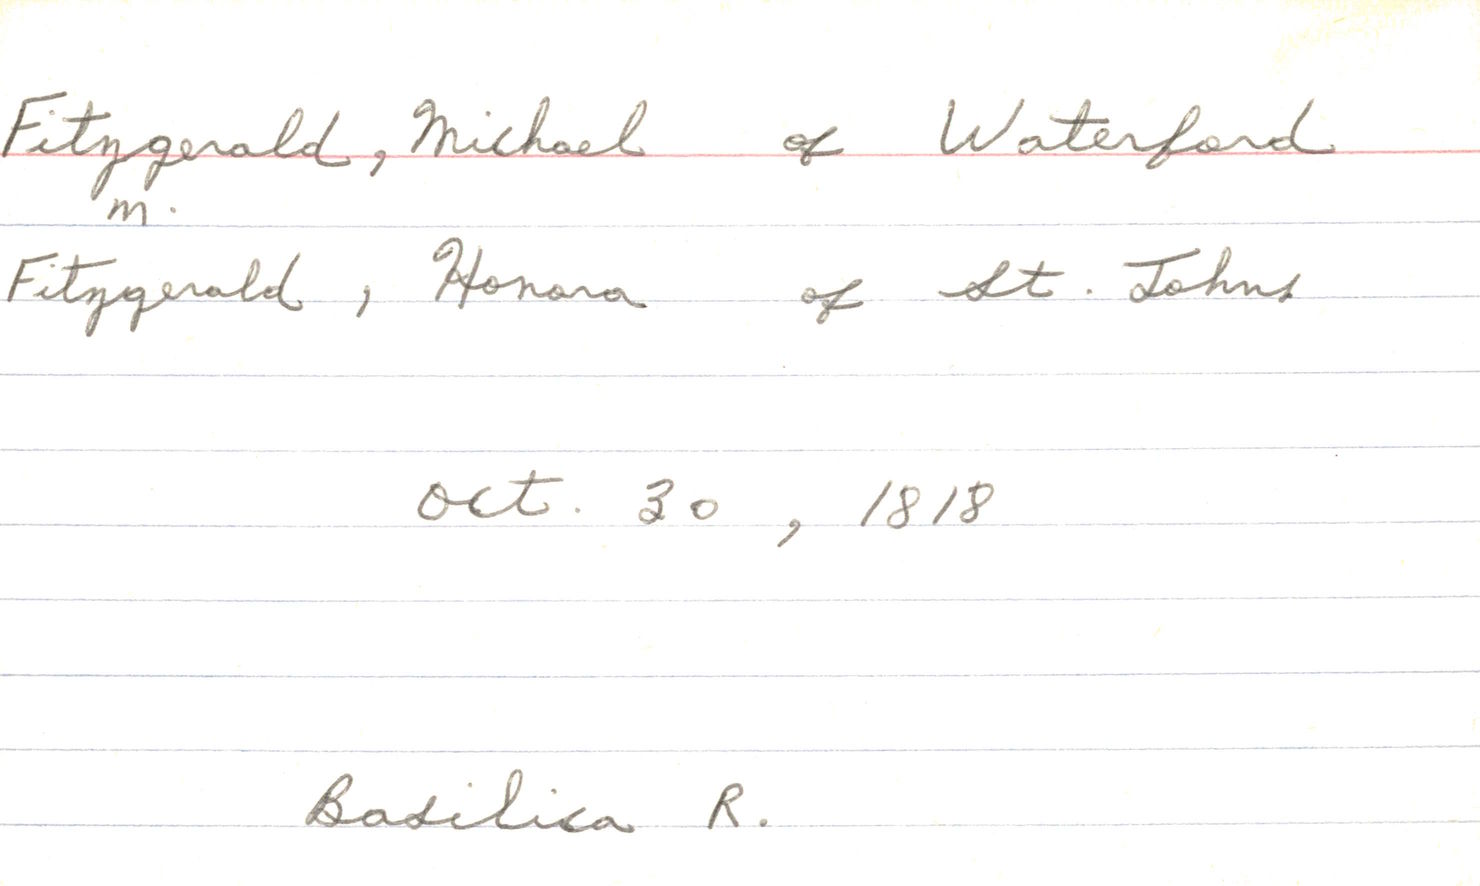 Fitzgerald, Michael of Waterford
m.
Fitzgerald, Honora of St. Johns
Oct. 30, 1818
Basilica R.